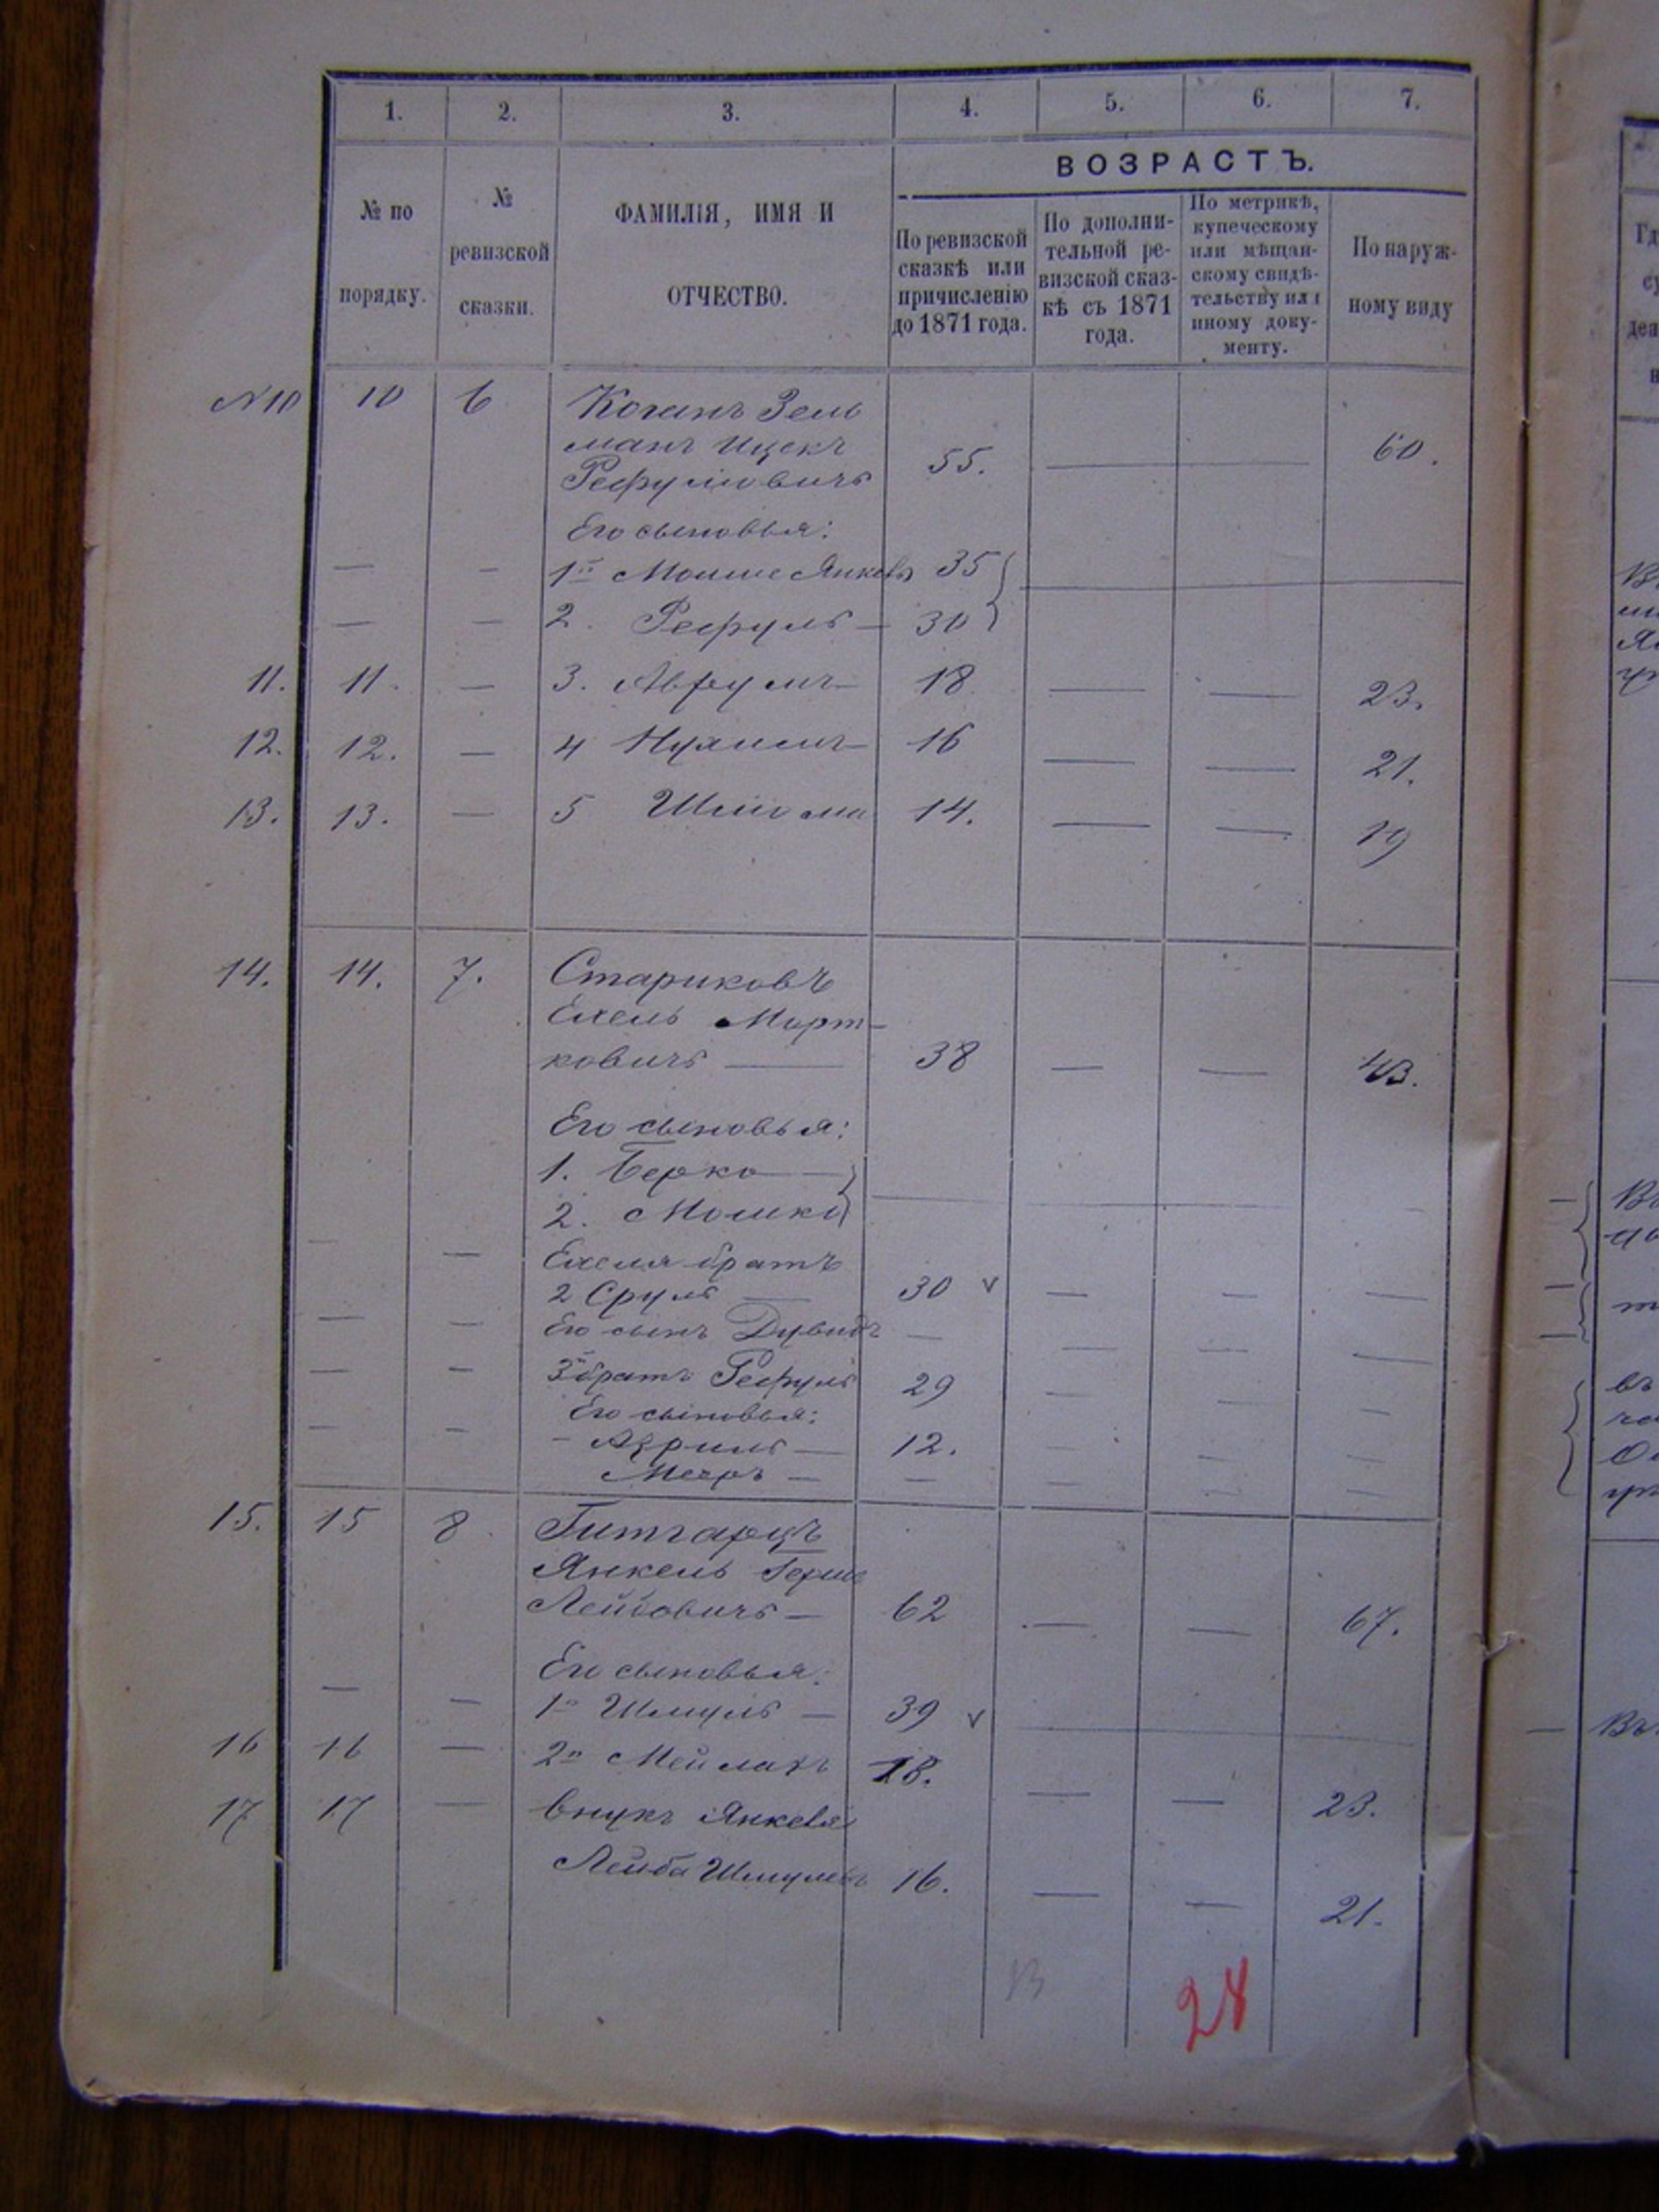 1. 2. 3. 4. 5. 6. 7.
ВОЗРАСТЪ.
№ по порядку.
№ ревизской сказки.
ФАМИЛІЯ, ИМЯ И
ОТЧЕСТВО.
По ревизской
сказкѣ или
причисленію
до 1871 года.
По дополни-
тельной ре-
визской сказ-
кѣ съ 1871
года.
По метрикѣ,
купеческому
или мѣщан-
скому свидѣ-
тельству или
иному доку-
менту.
По наруж-
ному виду
№10 10 6 Коганъ Зель
манъ Ицекъ 55. — — 60.
Рефуловичъ
Его сыновья:
— — 1й Мошке Янкель 35
— — 2. Рефуль — 30
11. 11. — 3. Аврумъ — 18 — — 23.
12. 12. — 4 Нухимъ — 16 — — 21.
13. 13. — 5 Шлиома 14. — — 19
14. 14. 7. Стариковъ
Ехель Морт-
ковичъ — 38 — — 43.
Его сыновья:
1. Берко —
2. Мошко
— — Ехеля братъ
2 Сруль — 30 v — — —
— — Его сынъ Дувидъ — — — —
— — 3й братъ Рефуль 29 — — —
Его сыновья:
— — – Азриль — 12. — — —
Мееръ — — — — —
15. 15 8. Гитгарцъ
Янкель Герш
Лейбовичъ — 62 — — 67.
Его сыновья:
— — 1й Шмуль — 39 v
16 16 — 2й Мейлахъ 18. — — 23.
17 17 — Внукъ Янкеля
Лейба Шмулевъ 16. — — 21.
13
28